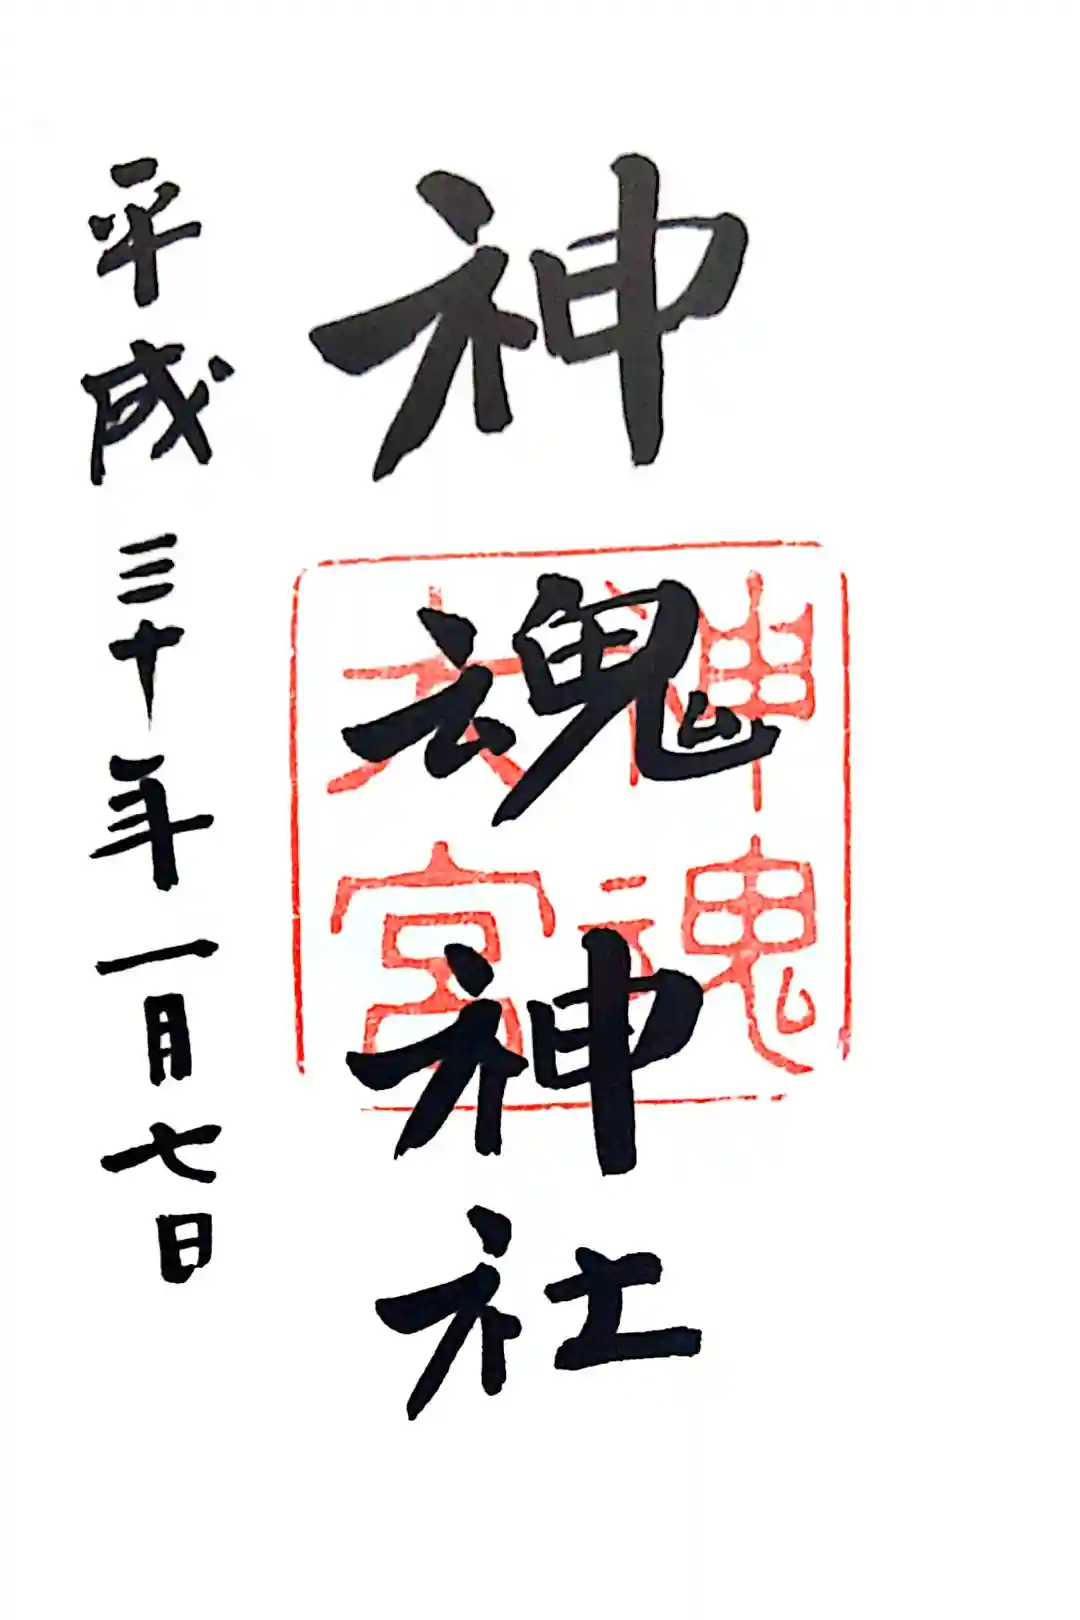 神魂神社
神魂
大宮
平成三十年一月七日